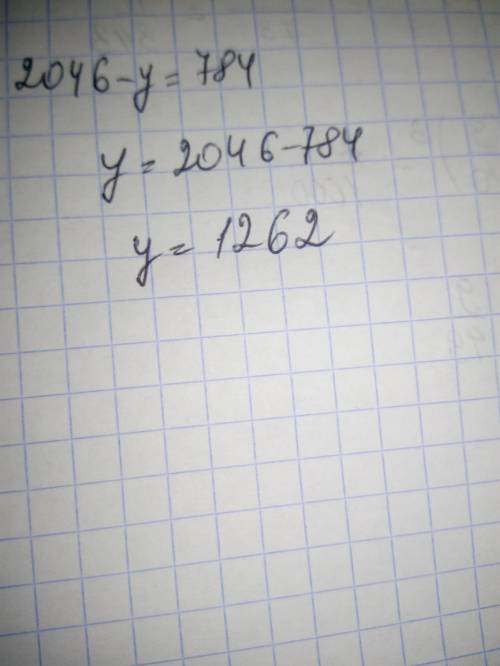 2046-y=784
y=2046-784
y=1262